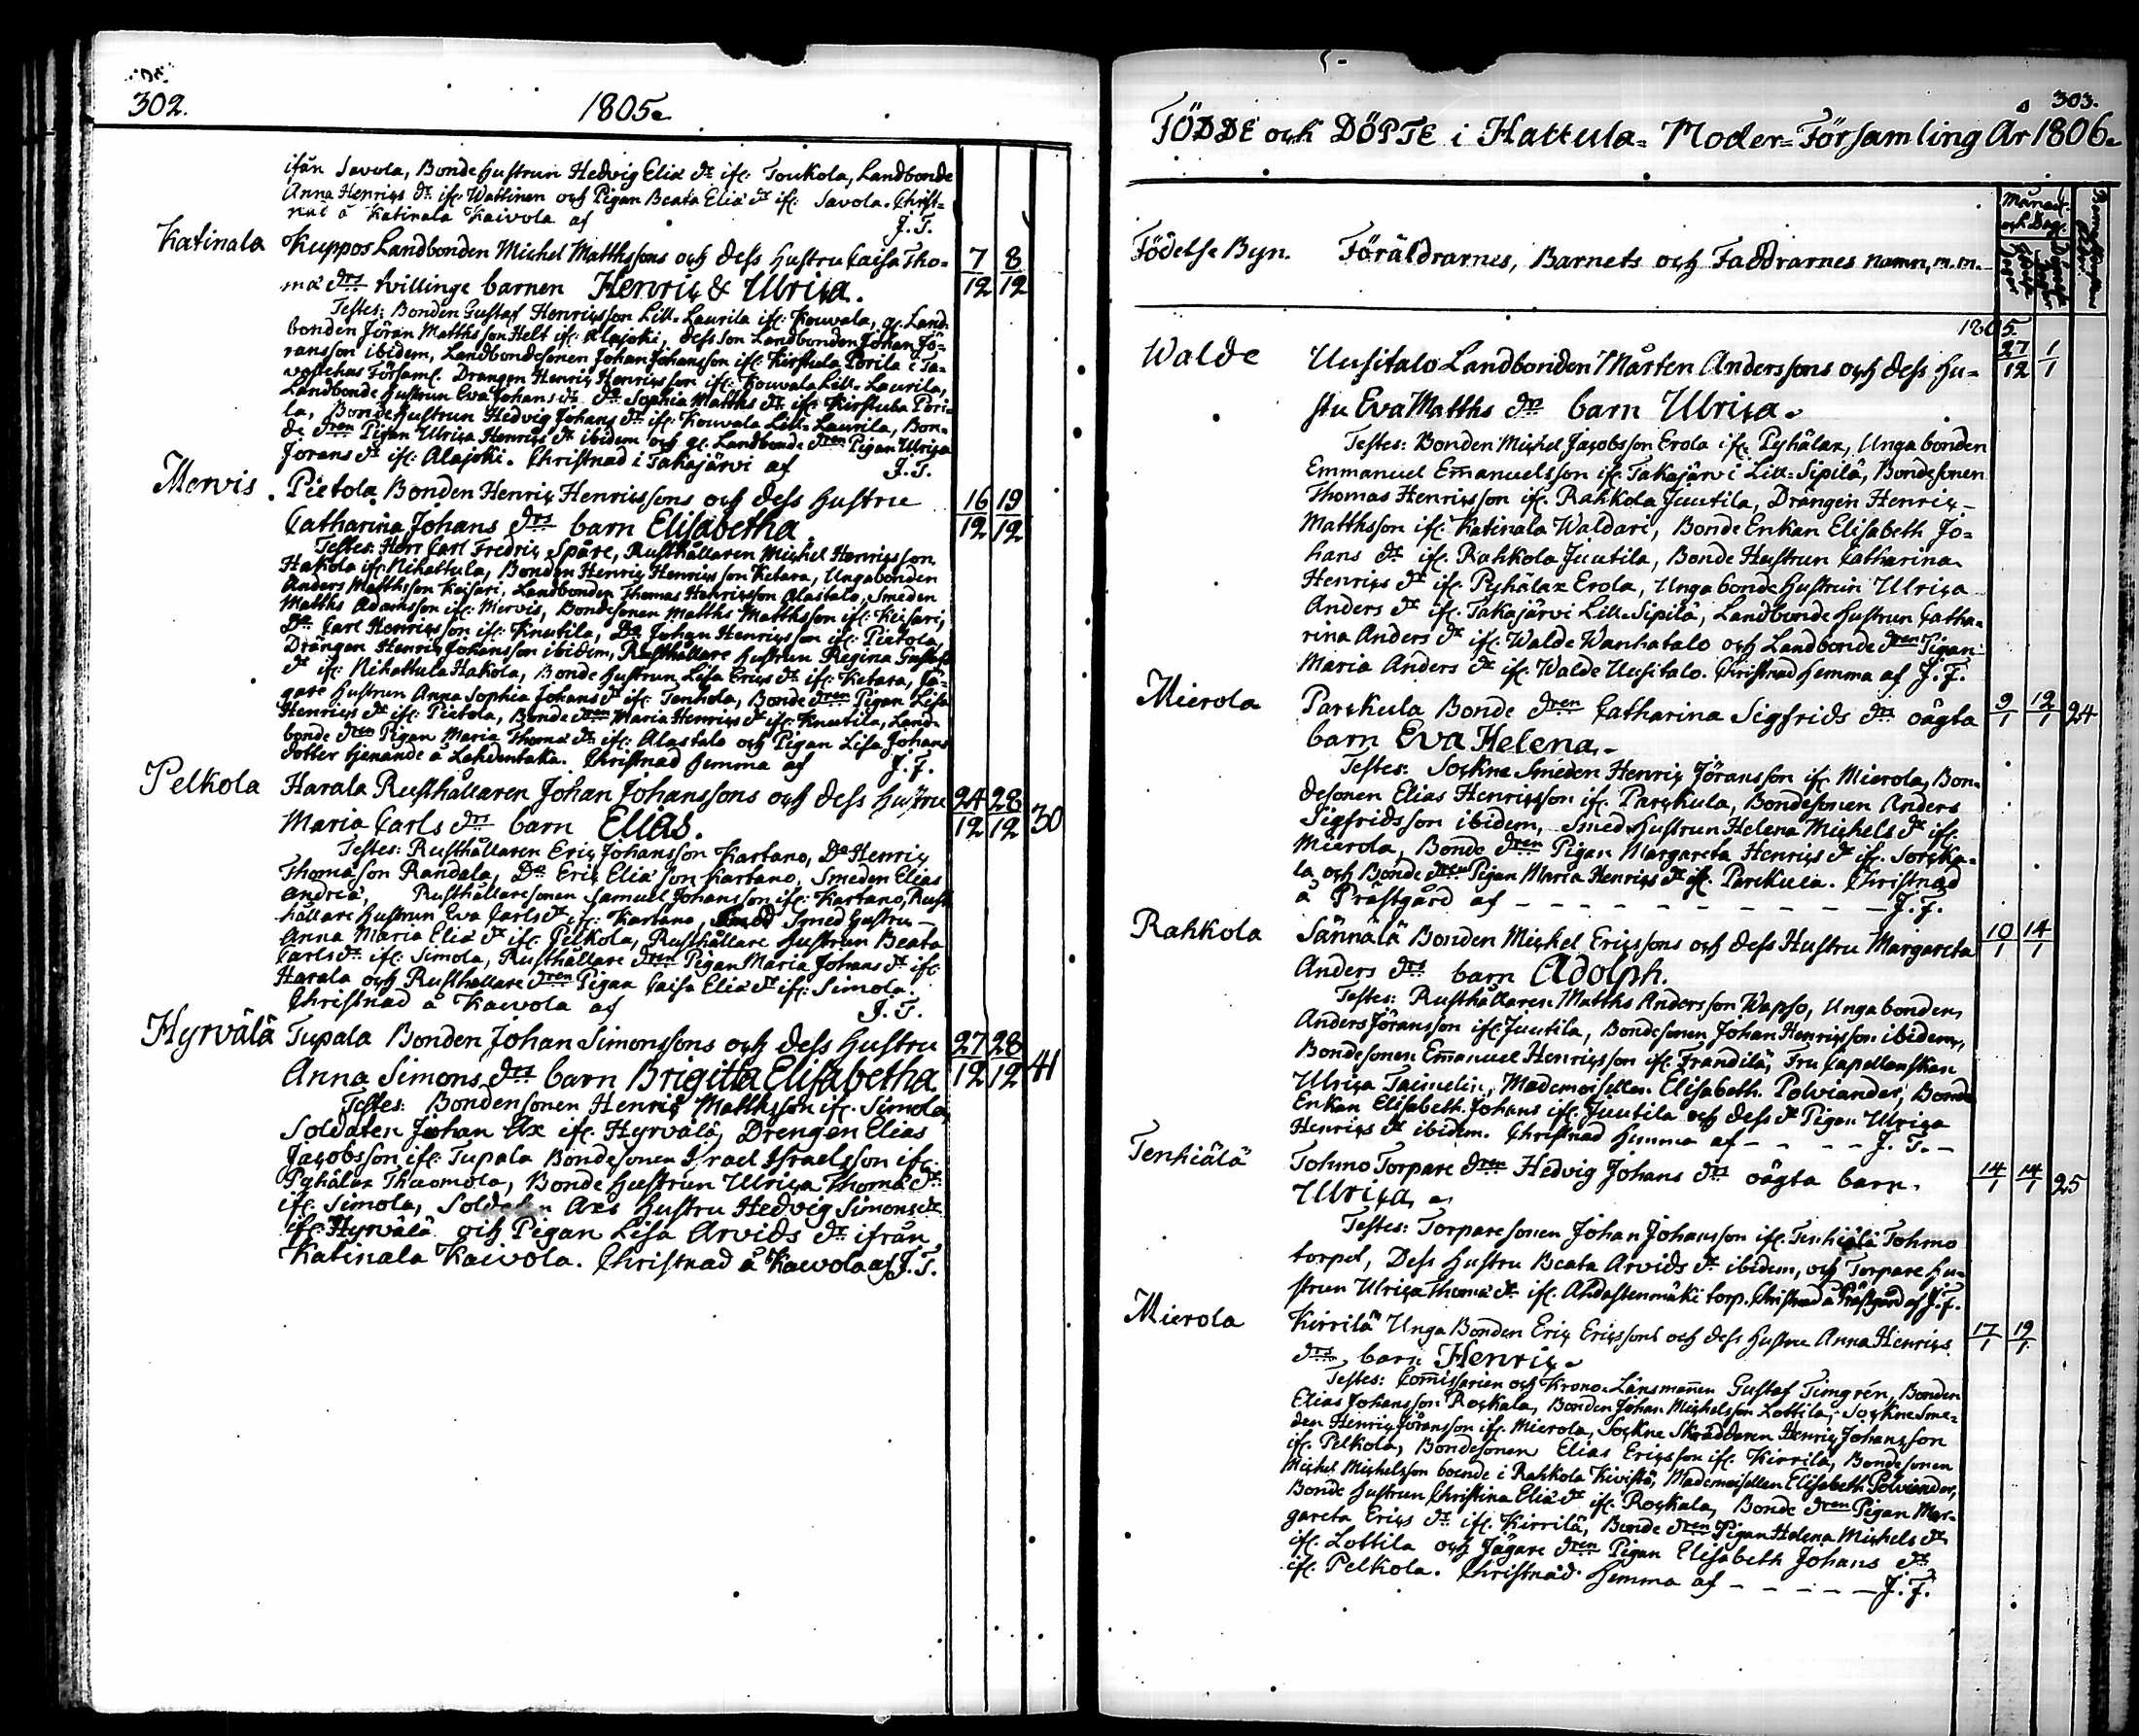 302.
1805.
ifrån Savola, Bonde hustrun Hedvig Eliæ dr ifr. Toukola, Landbonde
Anna Henrics dr ifr. Wattinen och Pigan Beata Eliæ dr ifr. Savola. Christ=
nat å Katinala Kaivola af J. T.
Katinala Kuppos Landbonden Michel Matthssons och dess hustru Caisa Tho= 7/12 8/12
mæ drs tvillinge barnen Henric & Ulrica.
Testes: Bonden Gustaf Henricsson Lill-Laurila ifr. Kouvala, gl. Land-
bonden Jöran Matthsson Helt ifr. Alajoki, dess son Landbonden Johan Jö=
ransson ibidem, Landbondesonen Johan Johansson ifr. Kirstula Porila i Ta=
vastehus Församl. Drängen Henric Henricsson ifr. Kouvala Lill-Laurila,
Landbonde hustrun Eva Johans dr. Do Sophia Matths dr ifr. Kirstula Pori=
la, Bonde hustrun Hedvig Johans dr ifr. Kouvala Lill-Laurila, Bon=
de dren Pigan Ulrica Henrics dr ibidem och gl. Landbonde dren Pigan Ulrica
Jörans dr ifr. Alajoki. Christnad i Takajärvi af J. T.
Mervis Pietola Bonden Henric Henricssons och dess hustru 16/12 19/12
Catharina Johans drs barn Elisabetha
Testes: Herr Carl Fredric Spåre, Rusthållaren Michel Henricsson
Hakola ifr. Nihattula, Bonden Henric Henricsson Ketara, Ungabonden
Anders Matthsson Keisari, Landbonden Thomas Henricsson Alastalo, Smeden
Matths Adamsson ifr. Mervis, Bondesonen Matths Matthsson ifr. Keisari,
Do Carl Henricsson ifr. Knutila, Do Johan Henricsson ifr. Pietola,
Drängen Henric Johansson ibidem, Rusthållare hustrun Regina Gustafs
dr ifr. Nihattula Hakola, Bonde hustrun Lisa Erics dr ifr. Ketara, Jä=
gare hustrun Anna Sophia Johans dr ifr. Tenhola, Bonde dren Pigan Lisa
Henrics dr ifr. Pietola, Bonde dren Maria Henrics dr ifr. Knutila, Land-
bonde dren Pigan Maria Thomæ dr ifr. Alastalo och Pigan Lisa Johans
dotter tjenande å Lahdentaka. Christnad hemma af J. F.
Pelkola Harala Rusthållaren Johan Johanssons och dess hustru 24/12 28/12 30
Maria Carls drs barn Elias.
Testes: Rusthållaren Eric Johansson Kartano, Do Henric
Thomasson Randala, Do Eric Eliæ son Kartano, Smeden Elias
Andreæ, Rusthållaresonen Samuel Johansson ifr. Kartano, Rust
hållare hustrun Eva Carls dr ifr. Kartano, Smed hustru
Anna Maria Eliæ dr ifr. Pelkola, Rusthållare hustrun Beata
Carls dr ifr. Simola, Rusthållare dren Pigan Maria Johans dr ifr.
Harala och Rusthållare dren Pigan Caisa Eliæ dr ifr. Simola.
Christnad å Kaivola af J. T.
Hyrvälä Tupala Bonden Johan Simonssons och dess hustru 27/12 28/12 41
Anna Simons drs barn Brigitta Elisabetha
Testes: Bondensonen Henric Matthsson ifr. Simola,
Soldaten Johan Ax ifr. Hyrvälä, Drengen Elias
Jacobsson ifr. Tupala Bondesonen Israel Israelsson ifr.
Pyhälax Thuomola, Bonde hustrun Ulrica Thomæ dr
ifr. Simola, Soldaten Axs hustru Hedvig Simons dr
ifr. Hyrvälä och Pigan Lisa Arvids dr ifrån
Katinala Kaivola. Christnad å Kaivola af J. T.
303.
FÖDDE och DÖPTE i Hattula= Moder=Församling År 1806.
Födelse Byn. Föräldrarnes, Barnets och Faddrarnes namn, m.m. Månad. och Dag.
1805.
Walde Uusitalo Landbonden Mårten Anderssons och dess hu= 27/12 1/1
stru Eva Matths drs barn Ulrica.
Testes: Bonden Michel Jacobsson Erola ifr. Pyhälax, Unga bonden
Emmanuel Emanuelsson ifr. Takajärvi Lill-Sipilä, Bondesonen
Thomas Henricsson ifr. Rahkola Juutila, Drängen Henric
Matthsson ifr. Katinala Waldari, Bonde Enkan Elisabeth Jo=
hans dr ifr. Rahkola Juutila, Bonde Hustrun Catharina
Henrics dr ifr. Pyhälax Erola, Unga bonde hustrun Ulrica
Anders dr ifr. Takajärvi Lill-Sipilä, Landbonde hustrun Catha=
rina Anders dr ifr. Walde Wanhatalo och Landbonde dren Pigan
Maria Anders dr ifr. Walde Uusitalo. Christnad hemma af J. F.
Mierola Parckula Bonde dren Catharina Sigfrids drs oägta 9/1 12/1 24
barn Eva Helena.
Testes: Sockne Smeden Henric Jöransson ifr. Mierola, Bon=
desonen Elias Henricsson ifr. Parckula, Bondesonen Anders
Sigfridsson ibidem, Smed hustrun Helena Michels dr ifr.
Mierola, Bonde dren Pigan Margareta Henrics dr ifr. Sorcka=
la och Bonde dren Pigan Maria Henrics dr ifr. Parckula. Christnad
å Prästgård af J. F.
Rahkola Sännälä Bonden Michel Ericssons och dess Hustru Margareta 10/1 14/1
Anders drs barn Adolph.
Testes: Rusthållaren Matths Andersson Wapso, Unga bonden
Anders Jöransson ifr. Juutila, Bondesonen Johan Henricsson ibidem,
Bondesonen Emanuel Henricsson ifr. Frandilä, Fru Capellanskan
Ulrica Taimelin, Mademoisellen Elisabeth Polviander, Bonde
Enkan Elisabeth Johans ifr. Juutila och dess dr Pigan Ulrica
Henrics dr ibidem. Christnad hemma af J. T.
Tenhiälä Tohmo Torpare dren Hedvig Johans drs oägta barn 14/1 14/1 25
Ulrica.
Testes: Torparesonen Johan Johansson ifr. Tenhiälä Tohmo
torpet, Dess hustru Beata Arvids dr ibidem, och Torpare hu=
strun Ulrica Thomæ dr ifr. Ahdastenmäki torp. Christnad å Prästgård af J. F.
Mierola Kirrilä Unga Bonden Eric Ericssons och dess hustru Anna Henrics 17/1 19/1
drs barn Henric.
Testes: Commissarien och Krono-Länsmannen Gustaf Timgrén, Bonden
Elias Johansson Rockala, Bonden Johan Michelsson Lottila, Sockne Sme=
den Henric Jöransson ifr. Mierola, Sockne Skrädderen Henric Johansson
ifr. Pelkola, Bondesonen Elias Ericsson ifr. Kirrilä, Bondesonen
Michel Michelsson boende i Rahkola Kivistö, Mademoisellen Elisabeth Polviander,
Bonde hustrun Christina Eliæ dr ifr. Rockala, Bonde dren Pigan Mar-
gareta Erics dr ifr. Kirrilä, Bonde dren Pigan Helena Michels dr
ifr. Lottila och Jägare dren Pigan Elisabeth Johans dr
ifr. Pelkola. Christnad hemma af J. F.